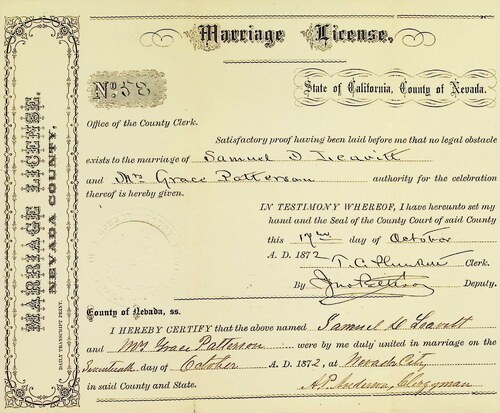 Marriage License,
No. 53
State of California, County of Nevada.
Office of the County Clerk.
Satisfactory proof having been laid before me that no legal obstacle
exists to the marriage of Samuel D. Leavitt
and Mrs Grace Patterson authority for the celebration
thereof is hereby given.
IN TESTIMONY WHEREOF, I have hereunto set my
hand and the Seal of the County Court of said County
this 17th day of October
A. D. 1872 T. C. Plunkett Clerk.
By Deputy.
County of Nevada, ss.
I HEREBY CERTIFY that the above named Samuel D Leavitt
and Mrs Grace Patterson were by me duly united in marriage on the
Seventeenth day of October A. D. 1872, at Nevada City
in said County and State. Clergyman
MARRIAGE LICENSE.
NEVADA COUNTY.
DAILY TRANSCRIPT PRINT.